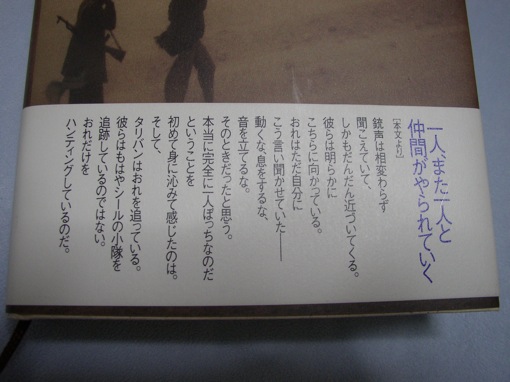 一人、また一人と
仲間がやられていく
[本文より]
銃声は相変わらず
聞こえていて、
しかもだんだん近づいてくる。
彼らは明らかに
こちらに向かっている。
おれはただ自分に
こう言い聞かせていた――
動くな、息をするな、
音を立てるな。
そのときだったと思う。
本当に完全に一人ぼっちなのだ
ということを
初めて身に沁みて感じたのは。
そして、
タリバンはおれを追っている。
彼らはもはやシールの小隊を
追跡しているのではない。
おれだけを
ハンティングしているのだ。